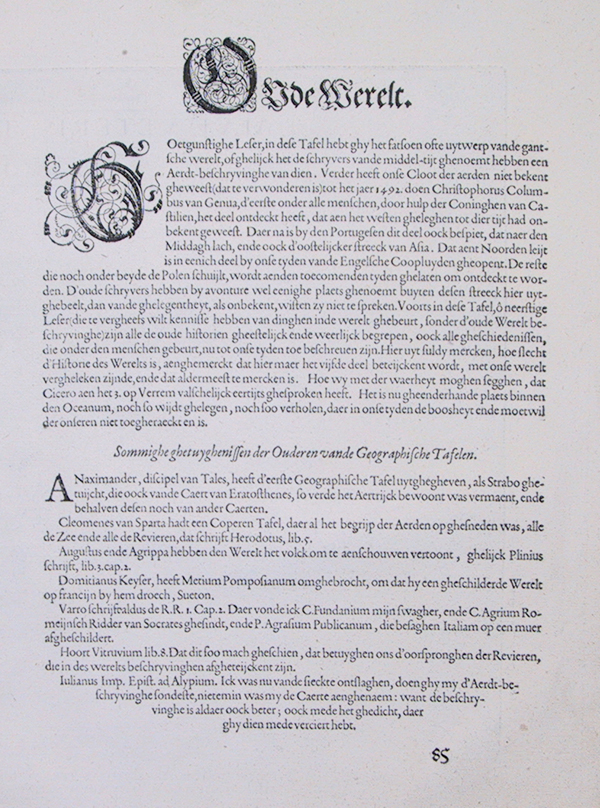 OVde Werelt.
GOetgunstighe Leser, in dese Tafel hebt ghy het fatsoen ofte uytwerp vande gant-
sche werelt, of ghelijck het de schryvers vande middel-tijt ghenoemt hebben een
Aerdt-beschryvinghe van dien. Verder heeft onse Cloot der aerden niet bekent
gheweest (dat te verwonderen is) tot het jaer 1492. doen Christophorus Colum-
bus van Genua, d'eerste onder alle menschen, door hulp der Coninghen van Ca-
stilien, het deel ontdeckt heeft, dat aen het westen gheleghen tot dier tijt had on-
bekent geweest. Daer na is by den Portugesen dit deel oock bespiet, dat naer den
Middagh lach, ende oock d'oostelijcker streeck van Asia. Dat aent Noorden leijt
is in eenich deel by onse tyden van Engelsche Coopluyden gheopent. De reste
die noch onder beyde de Polen schuijlt, wordt aenden toecomenden tyden ghelaten om ontdeckt te wor-
den. D'oude schryvers hebben by avonture wel eenighe plaets ghenoemt buyten desen streeck hier uyt-
ghebeelt, dan vande ghelegentheyt, als onbekent, wisten zy niet te spreken. Voorts in dese Tafel, ô neerstige
Leser (die te vergheefs wilt kennisse hebben van dinghen inde werelt ghebeurt, sonder d'oude Werelt be-
schryvinghe) zijn alle de oude historien gheestelijck ende weerlijck begrepen, oock alle gheschiedenissen,
die onder den menschen gebeurt, nu tot onse tyden toe beschreuen zijn. Hier uyt suldy mercken, hoe slecht
d'Historie des Werelts is, aenghemerckt dat hier maer het vijfde deel beteijckent wordt, met onse werelt
vergheleken zijnde, ende dat aldermeest te mercken is. Hoe wy met der waerheyt moghen segghen, dat
Cicero aen het 3. op Verrem valschelijck eertijts ghesproken heeft. Het is nu gheenderhande plaets binnen
den Oceanum, noch so wijdt ghelegen, noch soo verholen, daer in onse tyden de boosheyt ende moetwil
der onseren niet toegheraeckt en is.
Sommighe ghetuyghenissen der Ouderen vande Geographische Tafelen.
ANaximander, discipel van Tales, heeft d'eerste Geographische Tafel uytghegheven, als Strabo ghe-
tuijcht, die oock vande Caert van Eratosthenes, so verde het Aertrijck bewoont was vermaent, ende
behalven desen noch van ander Caerten.
Cleomenes van Sparta hadt een Coperen Tafel, daer al het begrijp der Aerden op ghesneden was, alle
de Zee ende alle de Revieren, dat schrijft Herodotus, lib. 5.
Augustus ende Agrippa hebben den Werelt het volck om te aenschouwen vertoont, ghelijck Plinius
schrijft, lib. 3. cap. 2.
Domitianus Keyser, heeft Metium Pomposianum omghebrocht, om dat hy een gheschilderde Werelt
op francijn by hem droech, Sueton.
Varro schrijft aldus de R. R. 1. Cap. 2. Daer vonde ick C. Fundanium mijn swagher, ende C. Agrium Ro-
meijnsch Ridder van Socrates ghesindt, ende P. Agrasium Publicanum, die besaghen Italiam op een muer
afgheschildert.
Hoort Vitruvium lib. 8. Dat dit soo mach gheschien, dat betuyghen ons d'oorspronghen der Revieren,
die in des werelts beschryvinghen afgheteijckent zijn.
Iulianus Imp. Epist. ad Alypium. Ick was nu vande sieckte ontslaghen, doen ghy my d'Aerdt-be-
schryvinghe sondeste, nietemin was my de Caerte aenghenaem: want de beschry-
vinghe is aldaer oock beter; oock mede het ghedicht, daer
ghy dien mede verciert hebt.
85